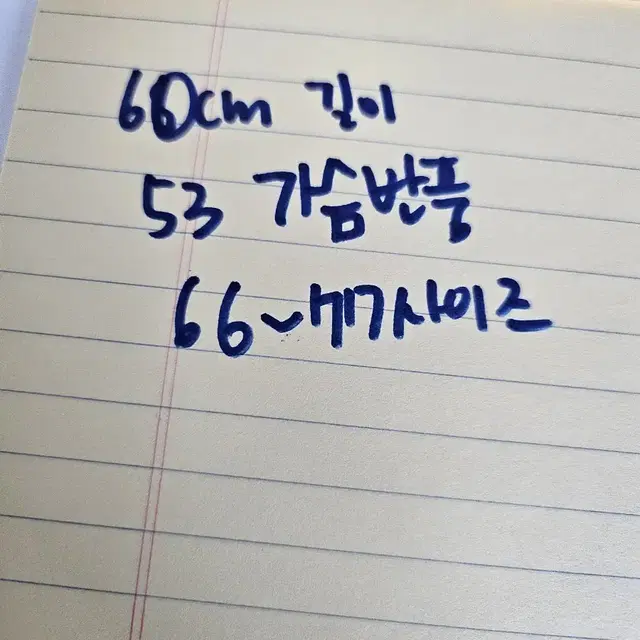 60cm 길이
53 가슴반품
66~77사이즈